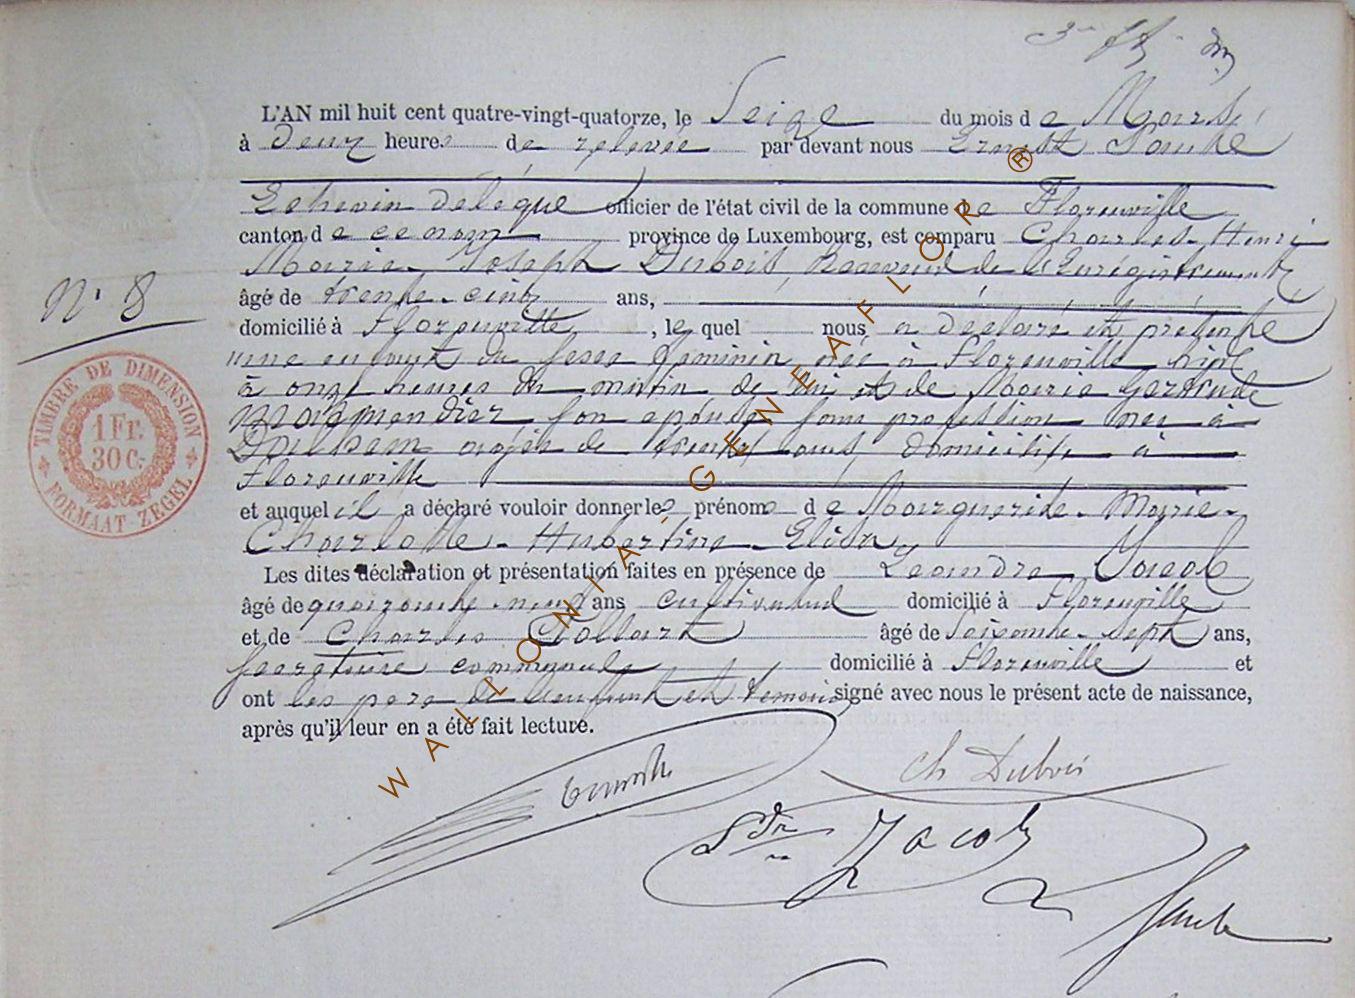 L'AN mil huit cent quatre-vingt-quatorze, le Seize du mois de Mars
à Deux heures de relevée par devant nous Ernest
Echevin délégué officier de l'état civil de la commune de Florenville
canton de ce nom province de Luxembourg, est comparu Charles-Henri
Marie-Joseph Dubois Receveur de l'Enrégistrement
âgé de trente-cinq ans,
N° 8
domicilié à Florenville, lequel nous a déclaré et présenté
une enfant du sexe féminin née à Florenville hier
à onze heures du matin de lui et de Marie Gertrude
son épouse sans profession née à
Dolhain âgée de trente ans, domiciliée à
Florenville
TIMBRE DE DIMENSION
1 Fr.
30 C.
FORMAAT ZEGEL
et auquel il a déclaré vouloir donner les prénoms de Marguerite-Marie-
Charlotte-Hubertine-Elisa
Les dites déclaration et présentation faites en présence de Léandre Jacob
âgé de quarante-neuf ans cultivateur domicilié à Florenville
et de Charles Collart âgé de Soixante-sept ans,
Secrétaire communal domicilié à Florenville et
ont les père de l'enfant et témoins signé avec nous le présent acte de naissance,
après qu'il leur en a été fait lecture.
Ch Dubois
Jacob
WALLONIA-GENEAFLOR®